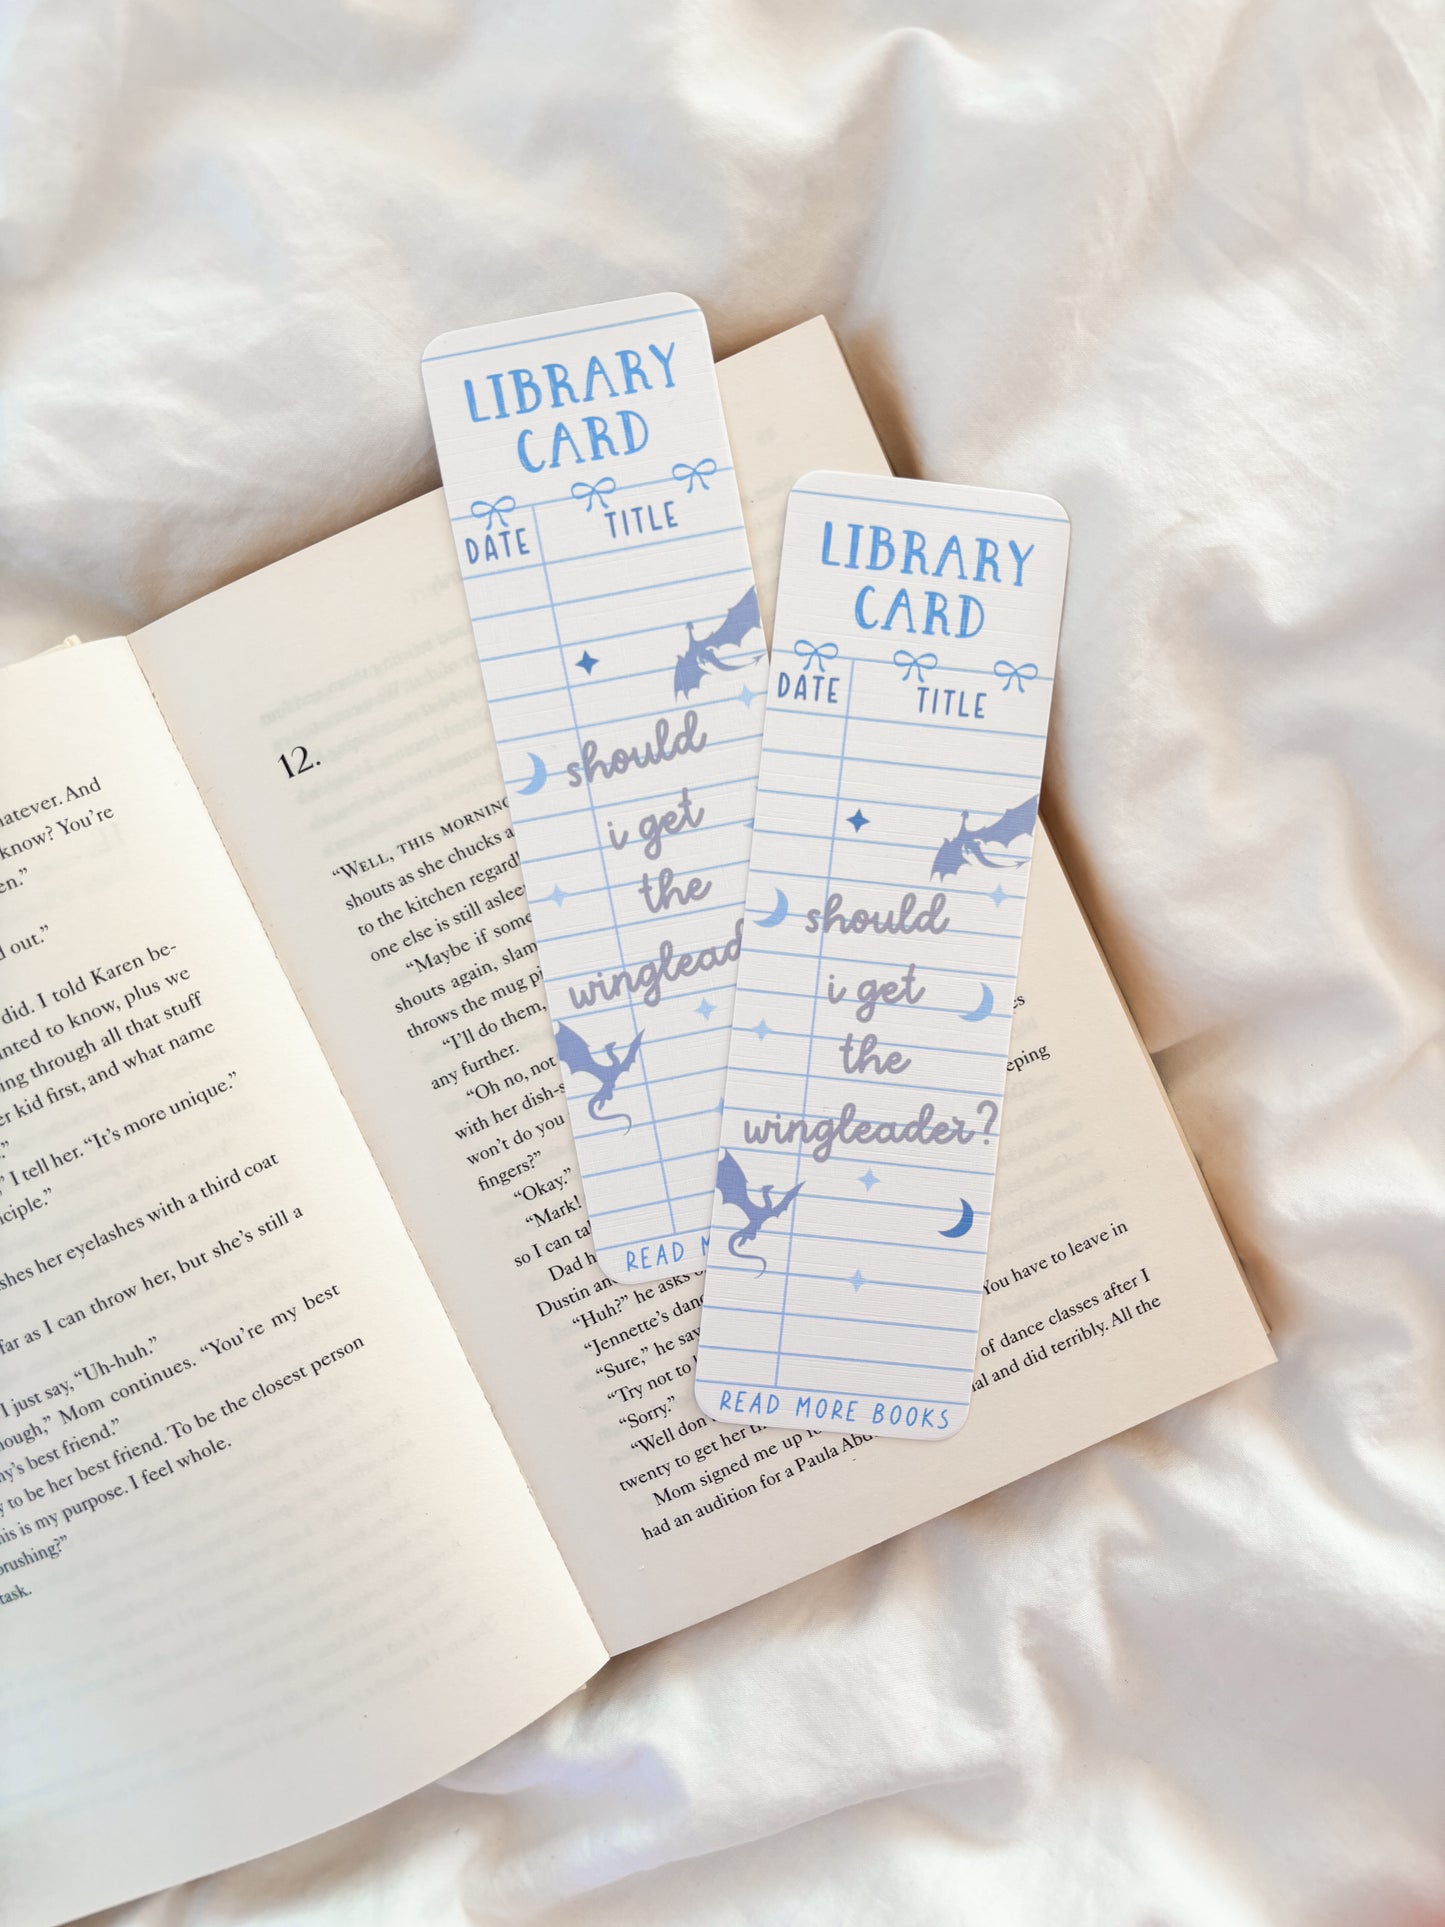 LIBRARY
CARD
DATE TITLE
should
i get
the
READ
LIBRARY
CARD
DATE TITLE
should
i get
the
wingleader?
READ MORE BOOKS
And
know? You're
out."
did. I told Karen be-
to know, plus we
through all that stuff
kid first, and what name
I tell her. "It's more unique."
her eyelashes with a third coat
far as I can throw her, but she's still a
I just say, "Uh-huh."
Mom continues. "You're my best
best friend."
to be her best friend. To be the closest person
is my purpose. I feel whole.
task.
12.
"WELL, THIS MORNING
shouts as she chucks a
to the kitchen
one else is still
"Maybe if some
shouts again,
throws the mug
"I'll do them,
any further.
"Oh no, not
with her
won't do you
fingers?"
"Okay."
"Mark!
so I can
Dad
Dustin
"Huh?" he asks
"Jennette's
"Sure," he
"Try not to
"Sorry."
"Well You have to leave in
twenty to get her of dance classes after I
Mom signed me up and did terribly. All the
had an audition for a Paula